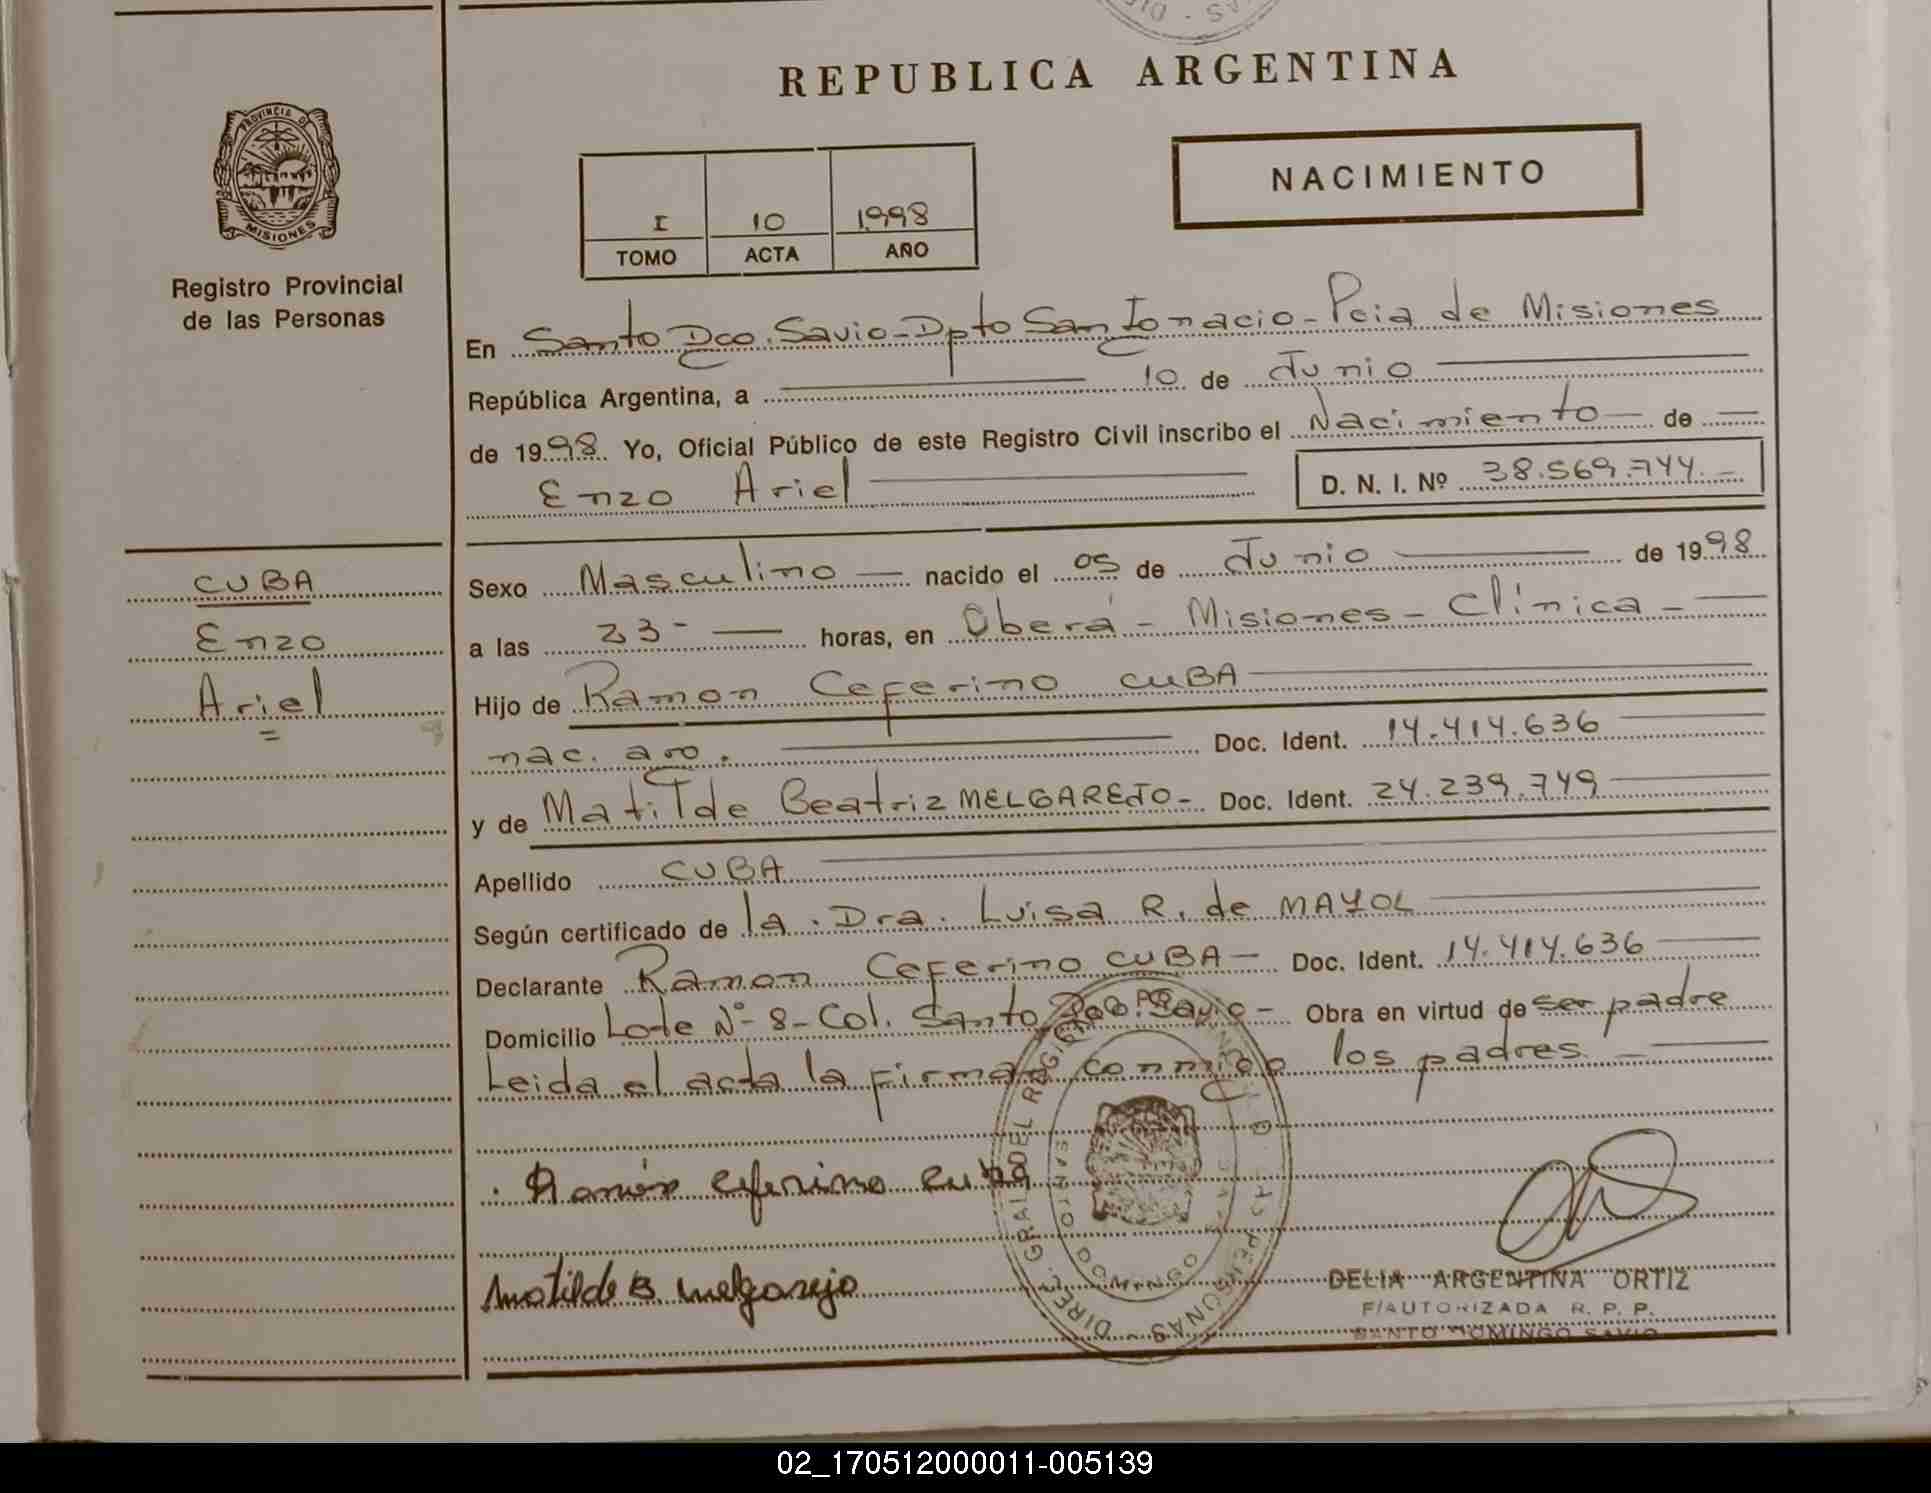 REPUBLICA ARGENTINA
PROVINCIA D
MISIONES
Registro Provincial
de las Personas
NACIMIENTO
I 10 1.998
TOMO ACTA AÑO
En Santo Dgo. Savio - Dpto San Ignacio - Pcia de Misiones
República Argentina, a 10 de Junio
de 1998 Yo, Oficial Público de este Registro Civil inscribo el Nacimiento de
Enzo Ariel D. N. I. Nº 38.569.744.-
CUBA
Enzo
Ariel
Sexo Masculino nacido el 05 de Junio de 1998
a las 23- horas, en Oberá - Misiones - Clínica -
Hijo de Ramon Ceferino CUBA
nac. arg. Doc. Ident. 14.414.636
y de Matilde Beatriz MELGAREJO - Doc. Ident. 24.239.749
Apellido CUBA
Según certificado de la Dra. Luisa R. de MAYOL
Declarante Ramon Ceferino CUBA - Doc. Ident. 14.414.636
Domicilio Lote Nº 8 - Col. Santo Dgo. Savio - Obra en virtud de ser padre
Leida el acta la firman conmigo los padres. -
Ramón Ceferino Cuba
Matilde B Melgarejo
DIRE. GRAL DEL REGI PERSONAS
SANTO DOMINGO
DELIA ARGENTINA ORTIZ
F/AUTORIZADA R. P. P.
SANTO DOMINGO SAVIO
02_170512000011-005139